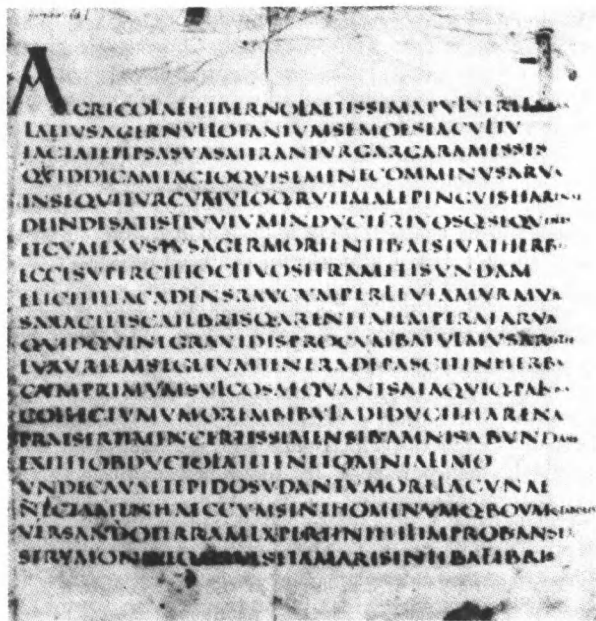 AGRICOLAEHIBERNOLAETISSIMAPVLVEREFARRA
LAETVSAGERNVLLOTANTVMSEMOESIACVLTV
IACTATETIPSASVASMIRANTVRGARGARAMESSES
QVIDDICAMIACTOQVISEMINECOMMINVSARVA
INSEQVITVRCVMVLOQ·RVITMALEPINGVISHARENAE
DEINDESATISFLVVIVMINDVCITRIVOSQ·SEQVENTIS
ETCVMEXVSTVSAGERMORIENTIB·AESTVATHERBIS
ECCESVPERCILIOCLIVOSITRAMITISVNDAM
ELICITILLACADENSRAVCVMPERLEVIAMVRMVR
SAXACIETISCATEBRISQ·ARENTIATEMPERATARVA
QVIDQVINEGRAVIDISPROCVMBATVLMVSARISTIS
LVXVRIEMSEGETVMTENERADEPASCITINHERBA
CVMPRIMVMSVLCOSAEQVANTSATAQVIQ·PALVDIS
COLLECTVMVMOREMBIBVLADIDVCITHARENA
PRAESERTIMINCERTISSIMENSIB·AMNISABVNDANS
EXITETOBDVCTOLATETENETOMNIALIMO
VNDECAVAETEPIDOSVDANTVMORELACVNAE
NECTAMENHAECCVMSINTHOMINVMQ·BOVMQ·LABORES
VERSANDOTERRAMEXPERTINIHILIMPROBANSER